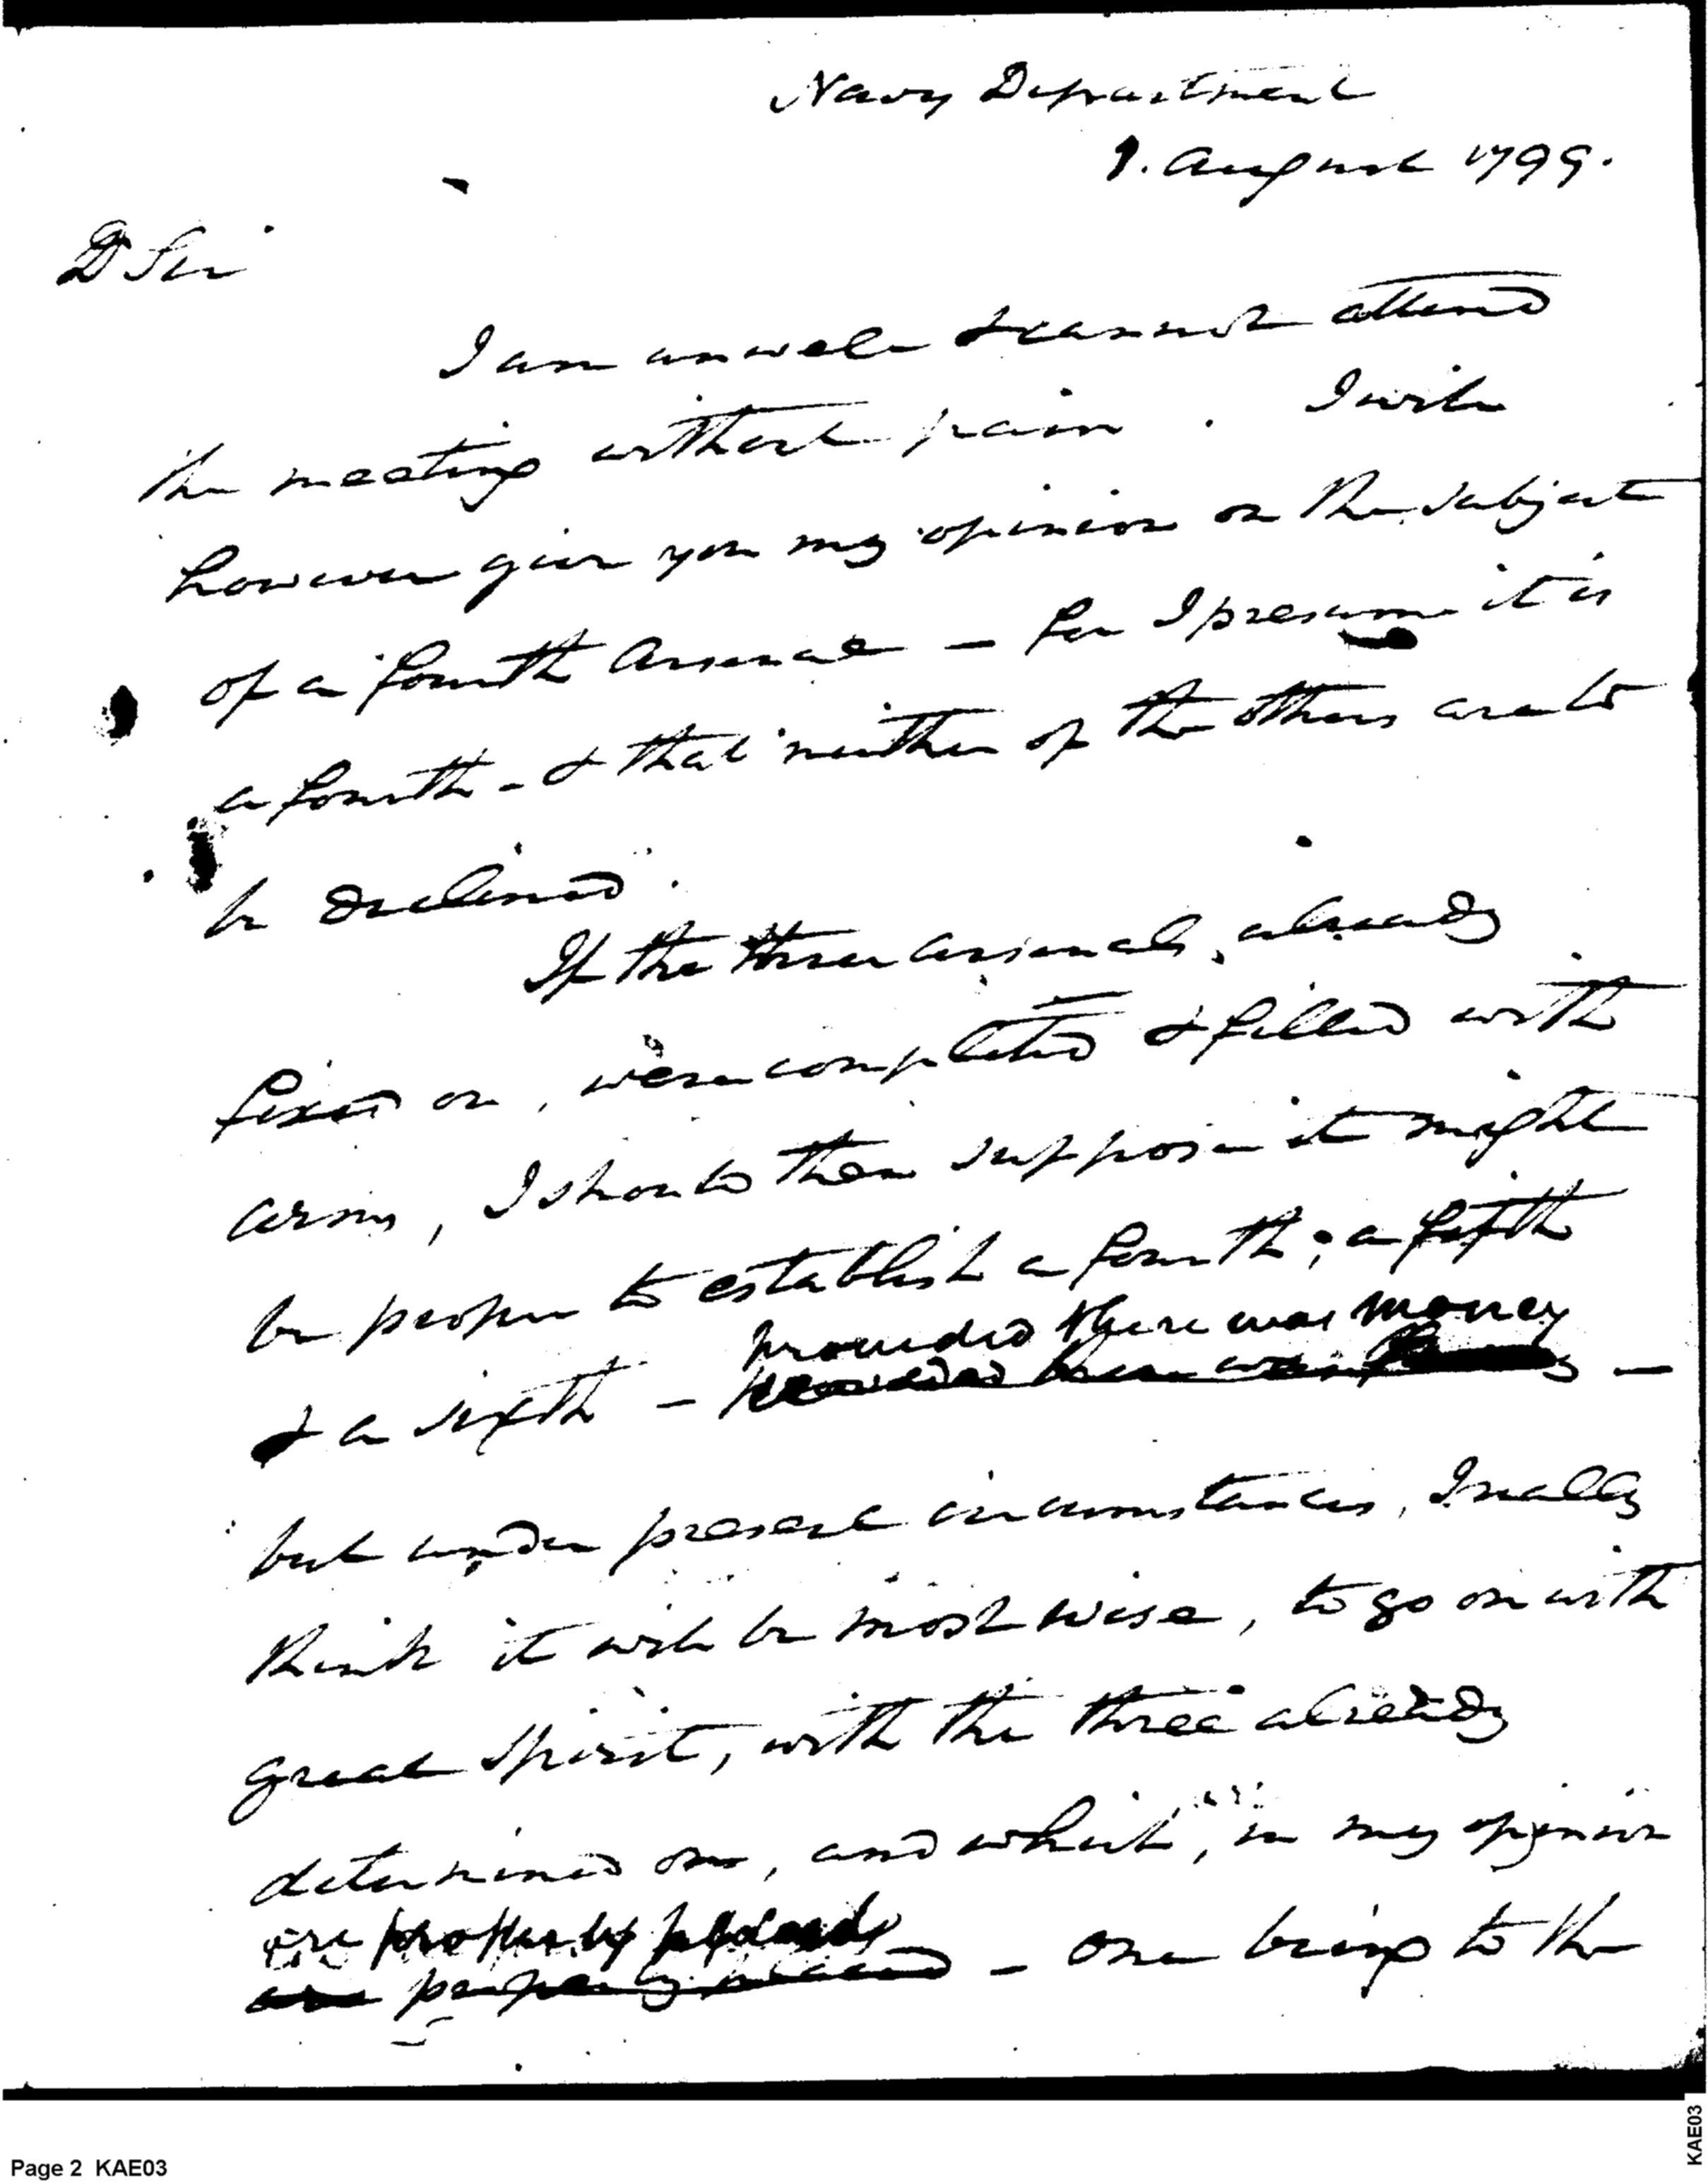 Navy Department
1. August 1799.
D Sir
I am unwell & cannot attend
the meeting without pain. I will
however give you my opinion on the subject
of a fourth Arsenal – for I presume it is
a fourth – & that neither of the others are to
be declined.
If the three arsenals, already
fixed on, were completed & filled with
arms, I should then suppose it might
be proper to establish a fourth; a fifth
provided there was money
& a sixth – provided there was –
but under present circumstances, I really
think it will be most wise, to go on with
great spirit, with the three already
determined on, and which, in my opinion
are properly placed
are properly placed – one being to the
Page 2 KAE03
KAE03